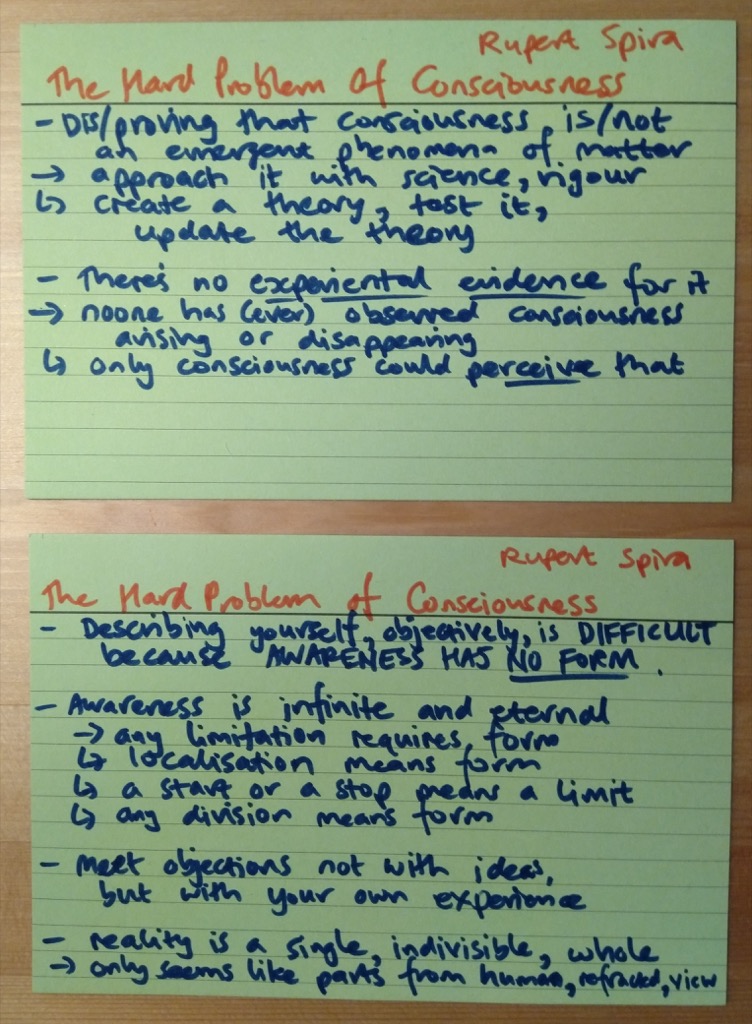 Rupert Spira
The Hard Problem Of Consciousness
- Dis/proving that consciousness is/not
an emergent phenomena of matter
→ approach it with science, rigour
↳ create a theory, test it,
update the theory
- There's no experiental evidence for it
→ noone has (ever) observed consciousness
arising or disappearing
↳ only consciousness could perceive that
Rupert Spira
The Hard Problem of Consciousness
- Describing yourself, objectively, is DIFFICULT
because AWARENESS HAS NO FORM.
- Awareness is infinite and eternal
→ any limitation requires form
↳ localisation means form
↳ a start or a stop means a limit
↳ any division means form
- Meet objections not with ideas,
but with your own experience
- reality is a single, indivisible, whole
→ only seems like parts from human, refracted, view